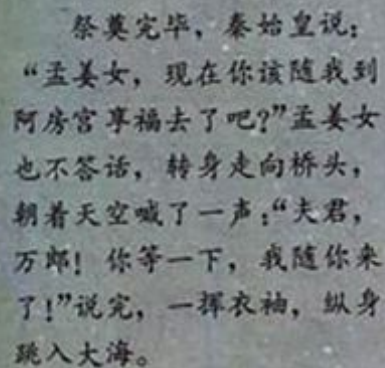 祭奠完毕，秦始皇说：
“孟姜女，现在你该随我到
阿房宫享福去了吧？”孟姜女
也不答话，转身走向桥头，
朝着天空喊了一声：“夫君，
万郎！你等一下，我随你来
了！”说完，一挥衣袖，纵身
跳入大海。